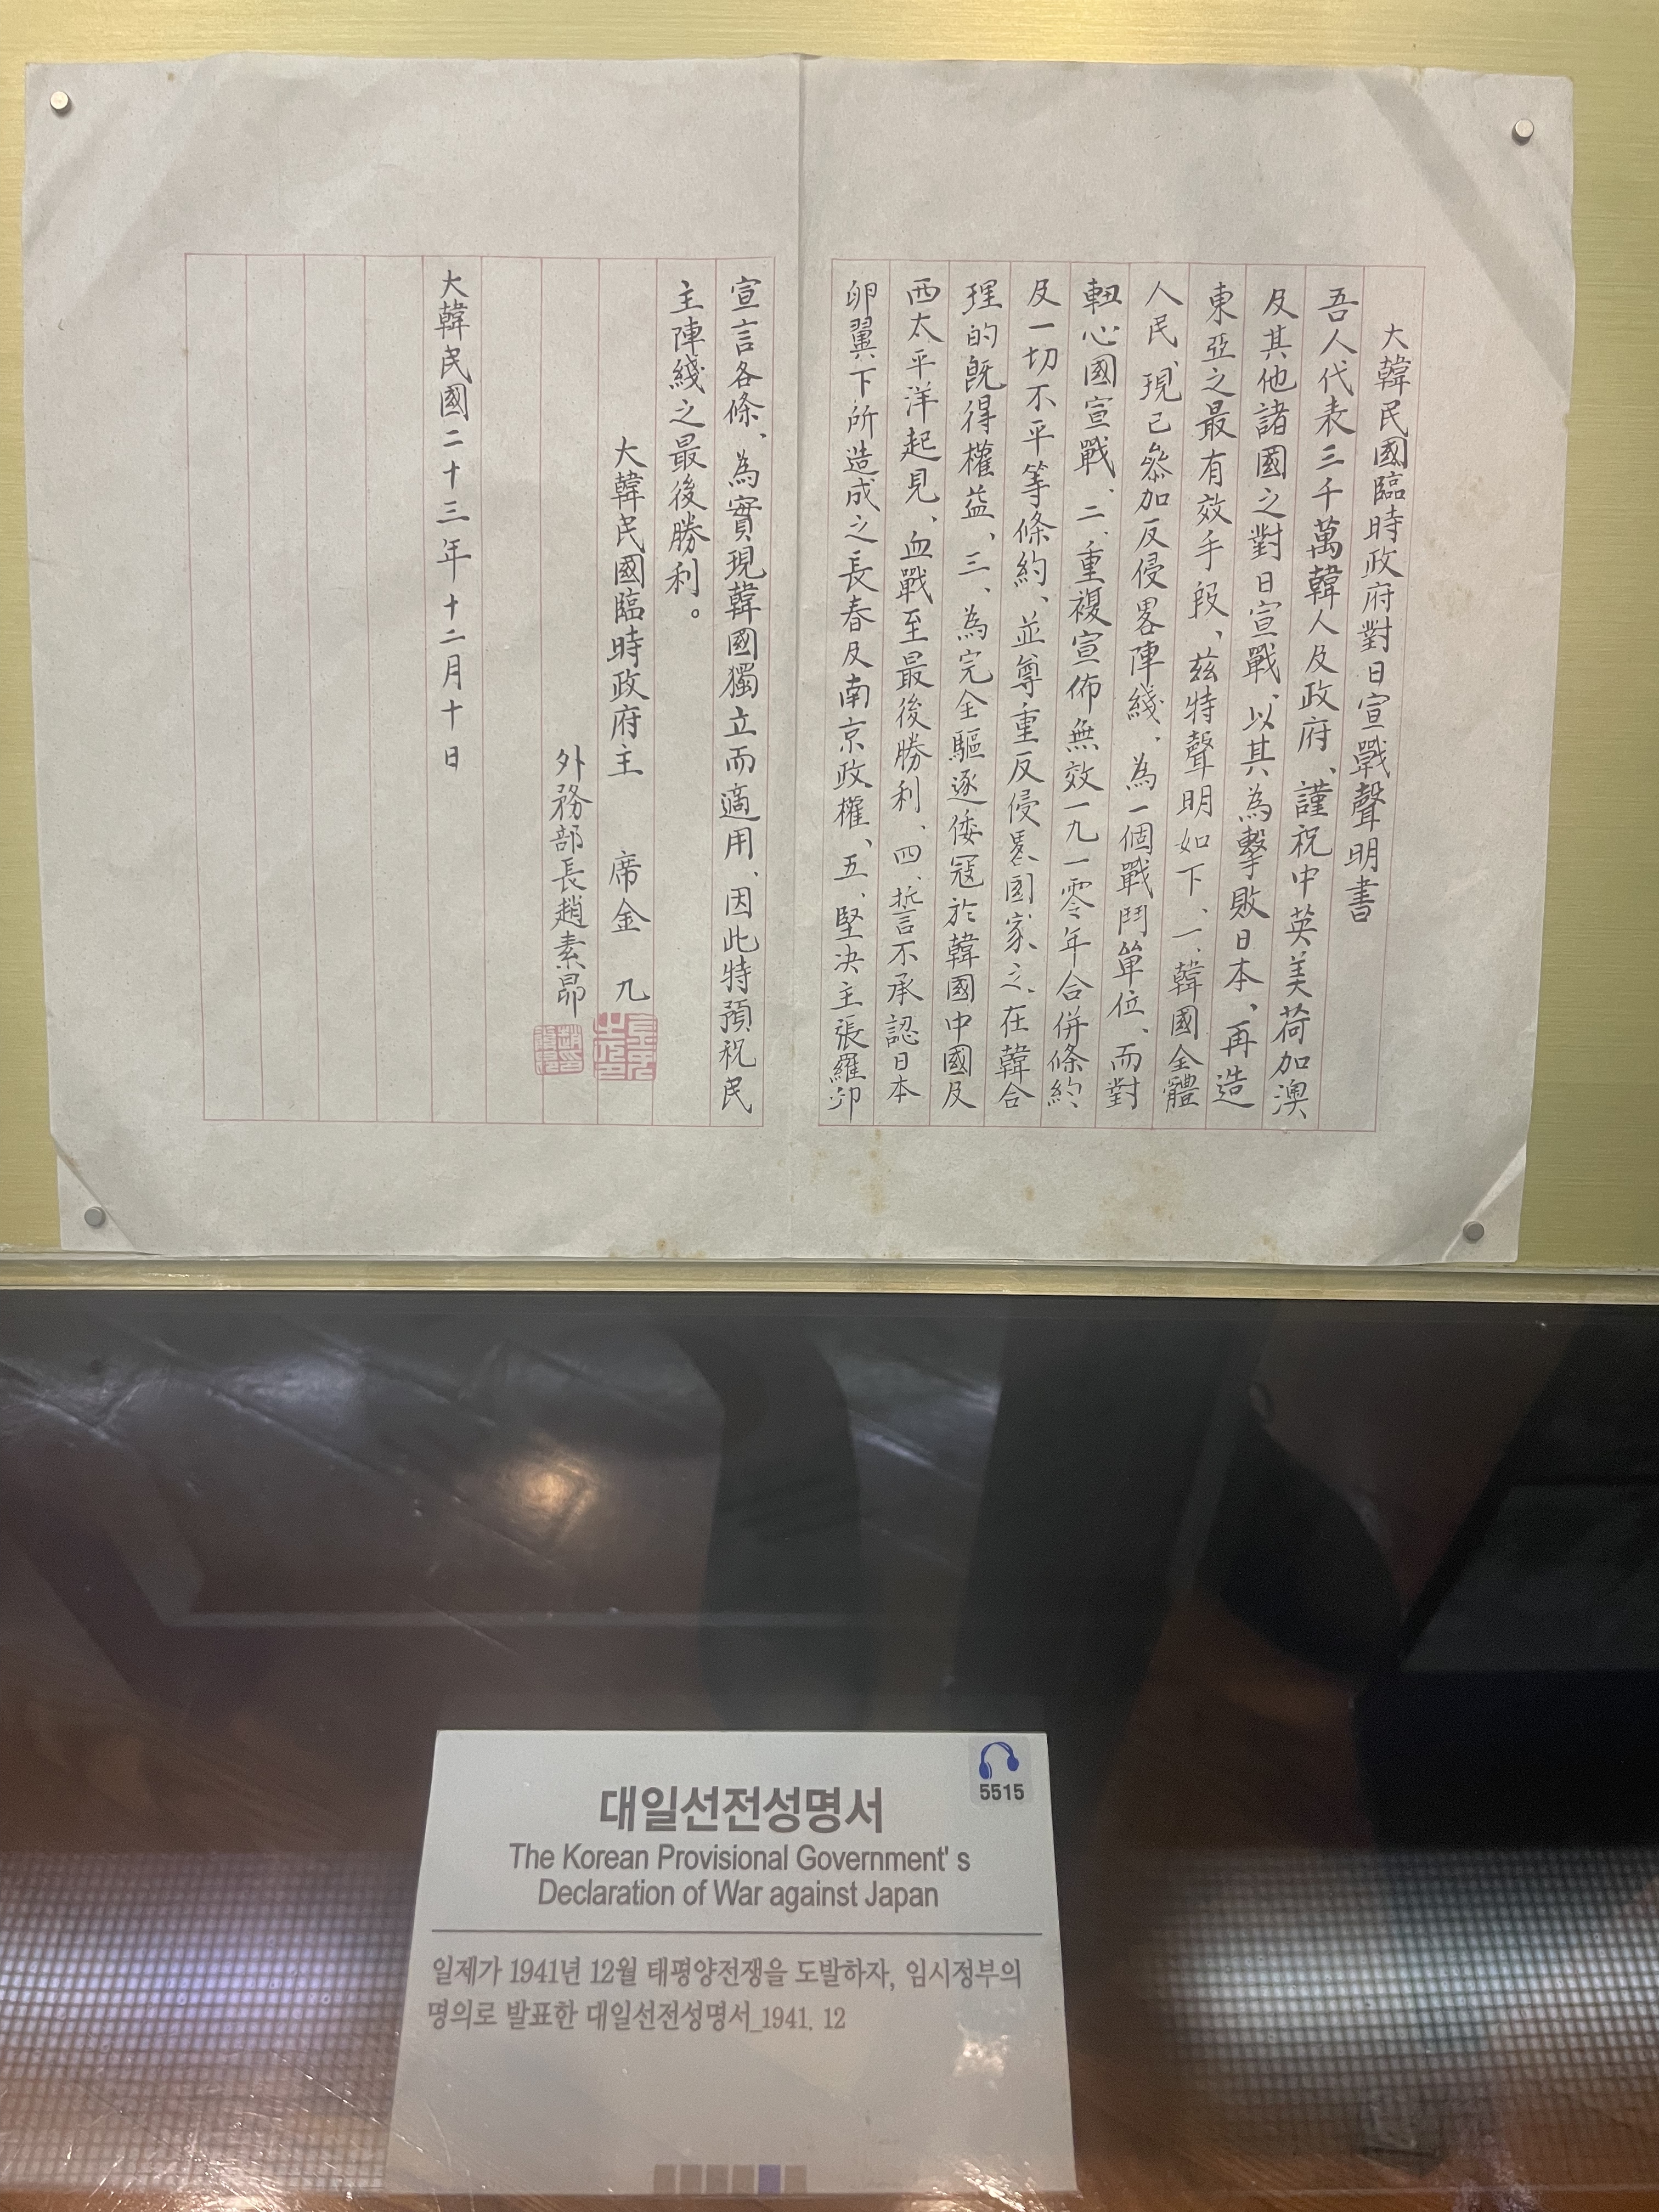 大韓民國臨時政府對日宣戰聲明書
吾人代表三千萬韓人及政府、謹祝中英美荷加澳
及其他諸國之對日宣戰、以其為擊敗日本、再造
東亞之最有效手段、茲特聲明如下、一、韓國全體
人民、現已參加反侵畧陣綫、為一個戰鬥單位、而對
軸心國宣戰、二、重複宣佈無效一九一零年合併條約
及一切不平等條約、並尊重反侵畧國家之、在韓合
理的既得權益、三、為完全驅逐倭寇於韓國中國及
西太平洋起見、血戰至最後勝利、四、誓言不承認日本
卵翼下所造成之長春及南京政權、五、堅決主張羅邱
宣言各條、為實現韓國獨立而適用、因此特預祝民
主陣綫之最後勝利。
大韓民國臨時政府主 席金 九
外務部長趙素昂
大韓民國二十三年十二月十日
5515
대일선전성명서
The Korean Provisional Government's
Declaration of War against Japan
일제가 1941년 12월 태평양전쟁을 도발하자, 임시정부의
명의로 발표한 대일선전성명서_1941. 12